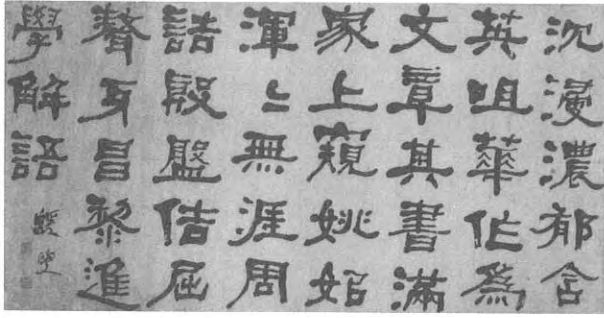 沈浸濃郁含
英咀華作為
文章其書滿
家上窺姚姒
渾〻無涯周
誥殷盤佶屈
聱牙昌黎進
學解語
蝯叟